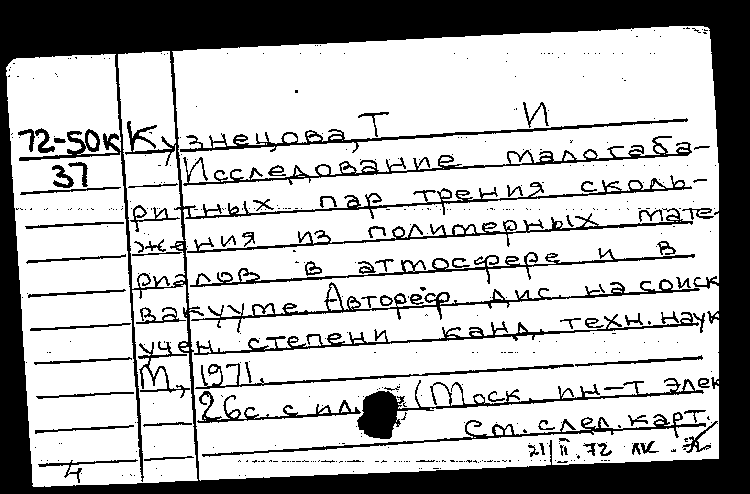 72-50к Кузнецова, Т И
37 Исследование малогаба-
ритных пар трения сколь-
жения из полимерных мате-
риалов в атмосфере и в
вакууме. Автореф. дис. на соиск
учен. степени канд. техн. наук
М., 1971.
26с. с ил. (Моск. ин-т элек
См. след. карт.
21/II.72 лк.
4